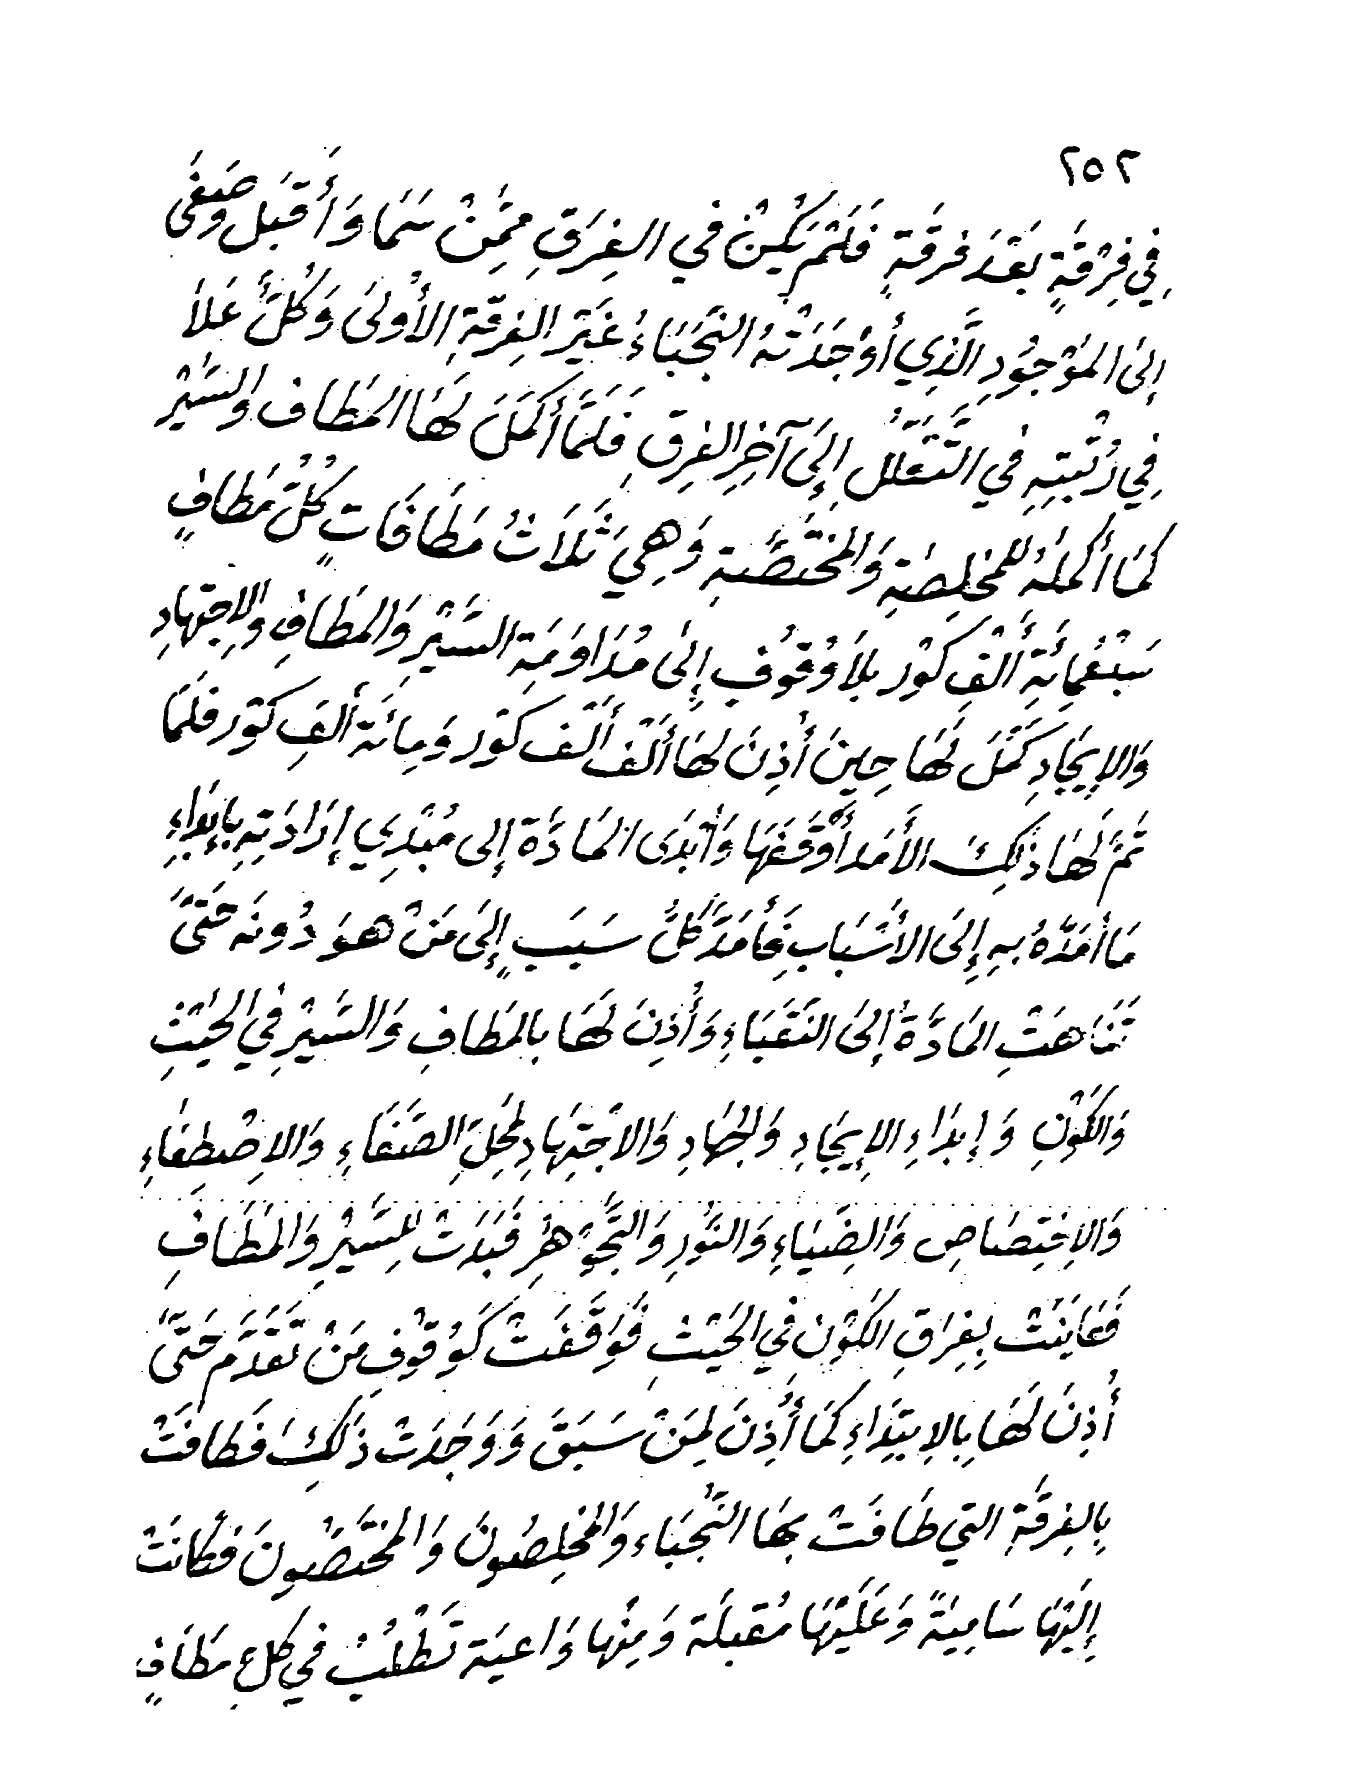 ٢٥٢
فِي فِرْقَةٍ بَعْدَ فرقَةٍ فَلَمْ يَكُنْ في الفِرَقِ مِمَّنْ سَمَا وَأَقبَل وصَفَى
إلى المَوْجُودِ الَّذِي أوْجَدَتْهُ النُّجَبَاءُ غَيْرَ الفِرقَةِ الأُولَى وَكُلٌّ عَلاَ
فِي رُتْبَتِهِ في التَّنَقُّلِ إِلَى آخِرِ الفِرِقِ فَلَمَّا أَكمَلَ لَهَا المَطاف والسَّيْر
كَمَا أَكمَلَهُ لِلمُخلِصَةِ وَالمُختَصَّةِ وَهِيَ ثَلاَثُ مَطَافَاتٍ كُلُّ مَطافٍ
سَبْعُمِائَةِ أَلْفِ كَوْر بِلاَ وُقوُفِ إِلى مُدَاوَمَة السَّيْرِ وَالمَطَافِ وَالِاجتِهادِ
وَالإِيجَادِ كَمُلَ لَهَا حِينَ أُذِنَ لهَا أَلْف أَلْف كَوْر وَمِائَة أَلفِ كَوْر فَلَمَّا
تَمَّ لَهَا ذَلِكَ الأَمَد أَوْقَفَهَا وَأَبْدَى المَادَّة إِلى مُبْدِي إِرَادَتِهِ بِإِبْدَاءِ
مَا أَمَدَّهُ بِهِ إِلَى الأَسْبَابِ فَأَمَدَّ كُلُّ سَبَبٍ إِلَى مَنْ هوَ دُونَه حَتَّى
تَنَاهَتِ المَادَّةُ إِلَى النُّقَبَاءِ وَأُذِنَ لَهَا بالمَطَافِ وَالسَّيْرِ فِي الحَيْثِ
وَالكَوْنِ وَإِبْدَاءِ الإِيجَادِ وَالجِهَادِ وَالاجْتِهَادِ لمَحَلِّ الصَّفَاءِ وَالاصْطِفَاءِ
وَالاِخْتِصَاصِ وَالضِّيَاءِ وَالنُّورِ وَالتَّجَوْهُرِ فَبَدَتْ لِلسَّيْرِ وَالمَطَافِ
فَعَايَنَتْ بِفِرَقِ الكَوْنِ فِي الحَيْثِ فَوَقَفَتْ كَوُقوُفِ مَنْ تَقَدَّمَ حَتَّى
أُذِنَ لَهَا بِالابتِدَاءِ كَمَا أُذِنَ لِمَنْ سَبَقَ وَوَجَدَتْ ذَلِكَ فَطافَتْ
بِالفِرقَةِ التي طَافَتْ بِهَا النُّجَبَاء وَالمُخلِصُونَ وَالمُختَصُّونَ فَكانَتْ
إِلَيْهَا سَامِيَةً وَعَلَيْهَا مُقبلَة وَمِنْهَا وَاعيَة تَطْلُبُ في كلِّ مَطَافٍ